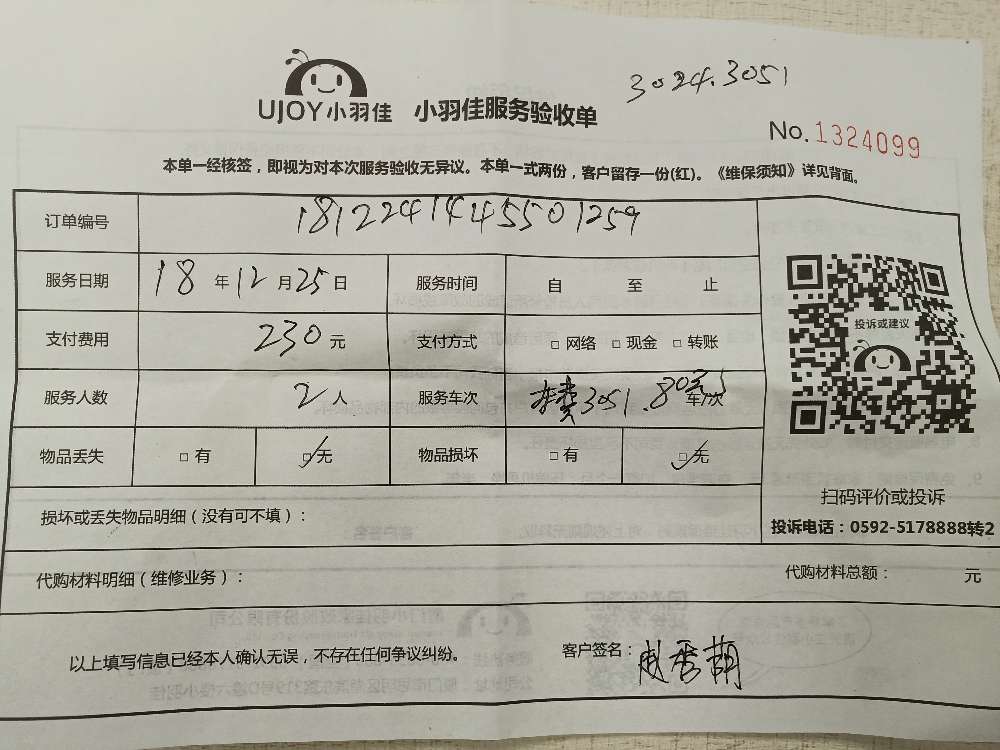 3024.3051
UJOY小羽佳 小羽佳服务验收单
No.1324099
本单一经核签，即视为对本次服务验收无异议。本单一式两份，客户留存一份(红)。《维保须知》详见背面。
订单编号 1812241445501259
服务日期 18年12月25日 服务时间 自 至 止
支付费用 230元 支付方式 □网络 □现金 □转账
投诉或建议
服务人数 2人 服务车次 车费3051.80元 车/次
物品丢失 □有 □无 物品损坏 □有 □无
扫码评价或投诉
损坏或丢失物品明细（没有可不填）：
投诉电话：0592-5178888转2
代购材料明细（维修业务）： 代购材料总额： 元
以上填写信息已经本人确认无误，不存在任何争议纠纷。 客户签名：